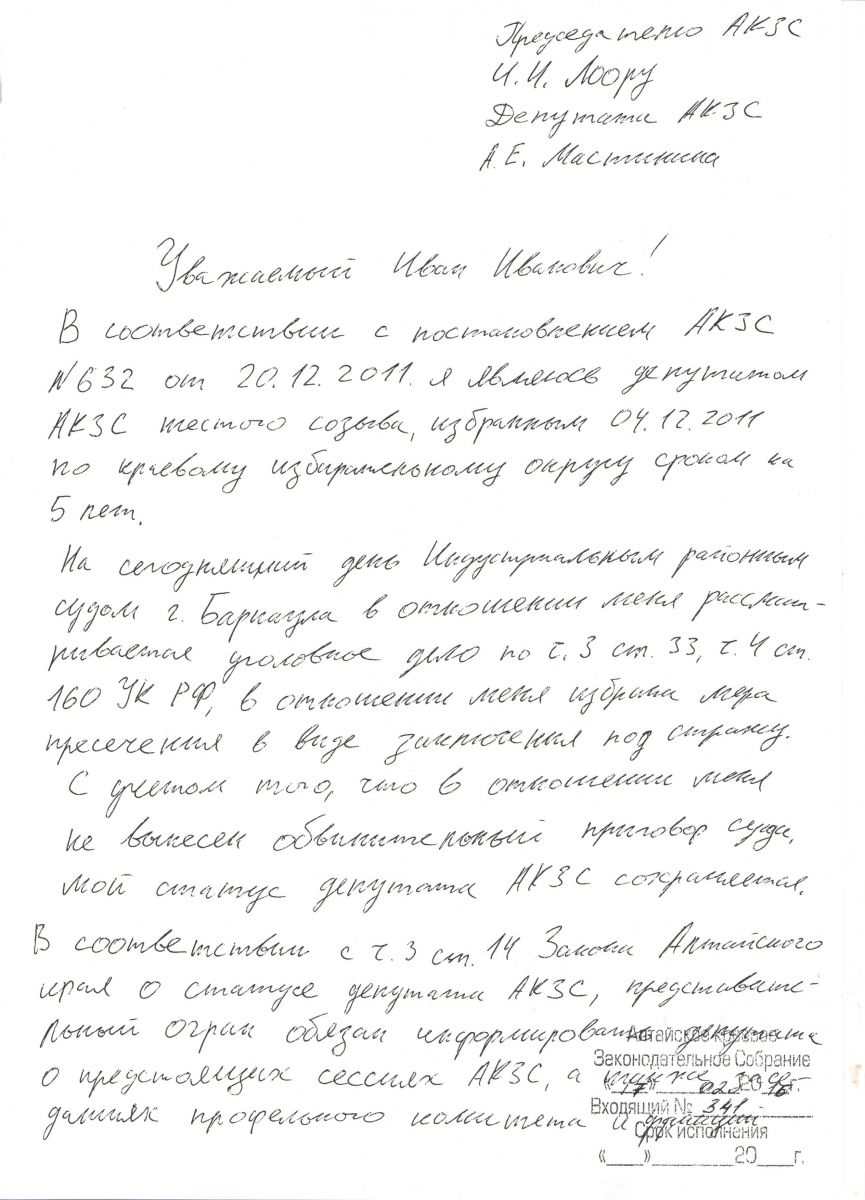 Председателю АКЗС
И.И. Лоору
Депутата АКЗС
А.Е. Мастинина
Уважаемый Иван Иванович!
В соответствии с постановлением АКЗС
№632 от 20.12.2011. я являюсь депутатом
АКЗС шестого созыва, избранным 04.12.2011
по краевому избирательному округу сроком на
5 лет.
На сегодняшний день Индустриальным районным
судом г. Барнаула в отношении меня рассмат-
ривается уголовное дело по ч.3 ст.33, ч.4 ст.
160 УК РФ, в отношении меня избрана мера
пресечения в виде заключения под стражу.
С учетом того, что в отношении меня
не вынесен обвинительный приговор суда,
мой статус депутата АКЗС сохраняется.
В соответствии с ч.3 ст.14 Закона Алтайского
края о статусе депутата АКЗС, представите-
льный орган обязан информировать депутата
о предстоящих сессиях АКЗС, а также о засе-
даниях профильного комитета и фракций
Алтайское краевое
Законодательное Собрание
«17» 02 2016г.
Входящий № 341
Срок исполнения
«___»________20___г.